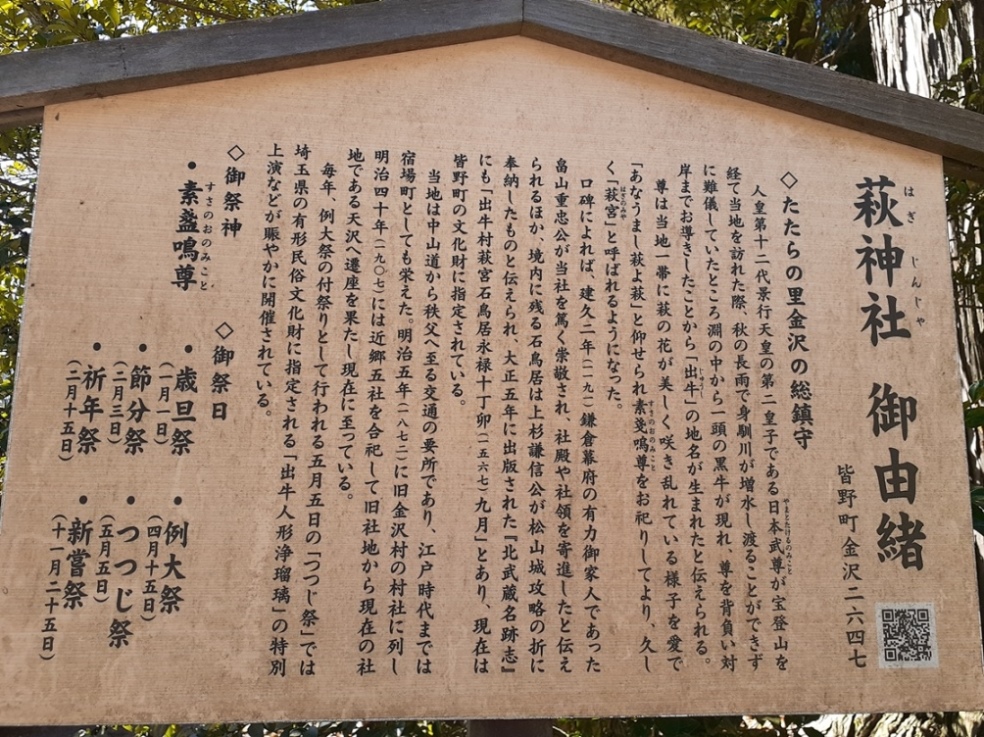 萩神社　御由緒
はぎ　じんじゃ
皆野町金沢二六四七
◇たたらの里金沢の総鎮守
人皇第十二代景行天皇の第二皇子である日本武尊が宝登山を
やまとたけるのみこと
経て当地を訪れた際、秋の長雨で身馴川が増水し渡ることができず
に難儀していたところ淵の中から一頭の黒牛が現れ、尊を背負い対
岸までお導きしたことから「出牛」の地名が生まれたと伝えられる。
じゅうし
尊は当地一帯に萩の花が美しく咲き乱れている様子を愛で
「あなうまし萩よ萩」と仰せられ素戔嗚尊をお祀りしてより、久し
すさのおのみこと
く「萩宮」と呼ばれるようになった。
はぎのみや
口碑によれば、建久二年（一一九一）鎌倉幕府の有力御家人であった
畠山重忠公が当社を篤く崇敬され、社殿や社領を寄進したと伝え
られるほか、境内に残る石鳥居は上杉謙信公が松山城攻略の折に
奉納したものと伝えられ、大正五年に出版された『北武蔵名跡志』
にも「出牛村萩宮石鳥居永禄十丁卯（一五六七）九月」とあり、現在は
皆野町の文化財に指定されている。
当地は中山道から秩父へ至る交通の要所であり、江戸時代までは
宿場町としても栄えた。明治五年（一八七二）に旧金沢村の村社に列し
明治四十年（一九〇七）には近郷五社を合祀して旧社地から現在の社
地である天沢へ遷座を果たし現在に至っている。
毎年、例大祭の付祭りとして行われる五月五日の「つつじ祭」では
埼玉県の有形民俗文化財に指定される「出牛人形浄瑠璃」の特別
上演などが賑やかに開催されている。
◇御祭神
・素盞嗚尊
すさのおのみこと
◇御祭日
・歳旦祭
（一月一日）
・節分祭
（二月三日）
・祈年祭
（二月十五日）
・例大祭
（四月十五日）
・つつじ祭
（五月五日）
・新嘗祭
（十一月二十五日）